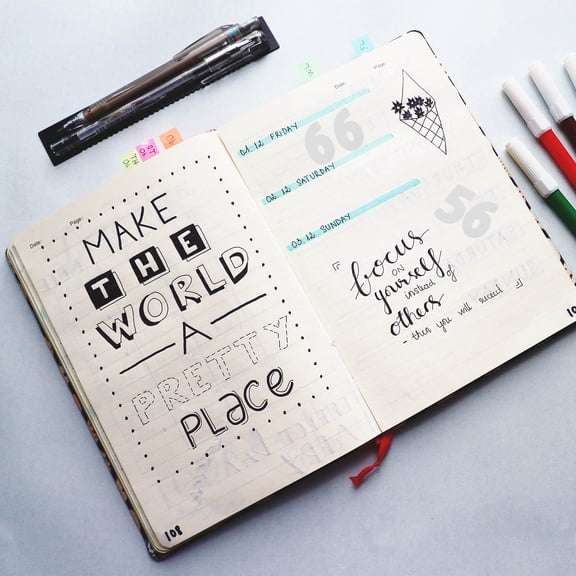 Date: Page:
MAKE
THE
WORLD
A
PRETTY
PLACE
108
Date: Page:
01.12 FRIDAY
66
02.12 SATURDAY
03.12 SUNDAY
56
focus
ON
yourself
instead of
others
- then you will succeed
10